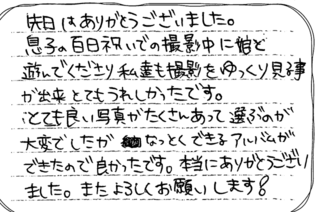 先日はありがとうございました。
息子の百日祝いでの撮影中に娘と
遊んでくださり私達も撮影をゆっくり見る事
が出来とてもうれしかったです。
とても良い写真がたくさんあって選ぶのが
大変でしたが なっとくできるアルバムが
できたので良かったです。本当にありがとうござい
ました。またよろしくお願いします